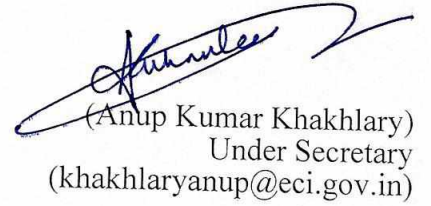 (Anup Kumar Khakhlary)
Under Secretary
(khakhlaryanup@eci.gov.in)